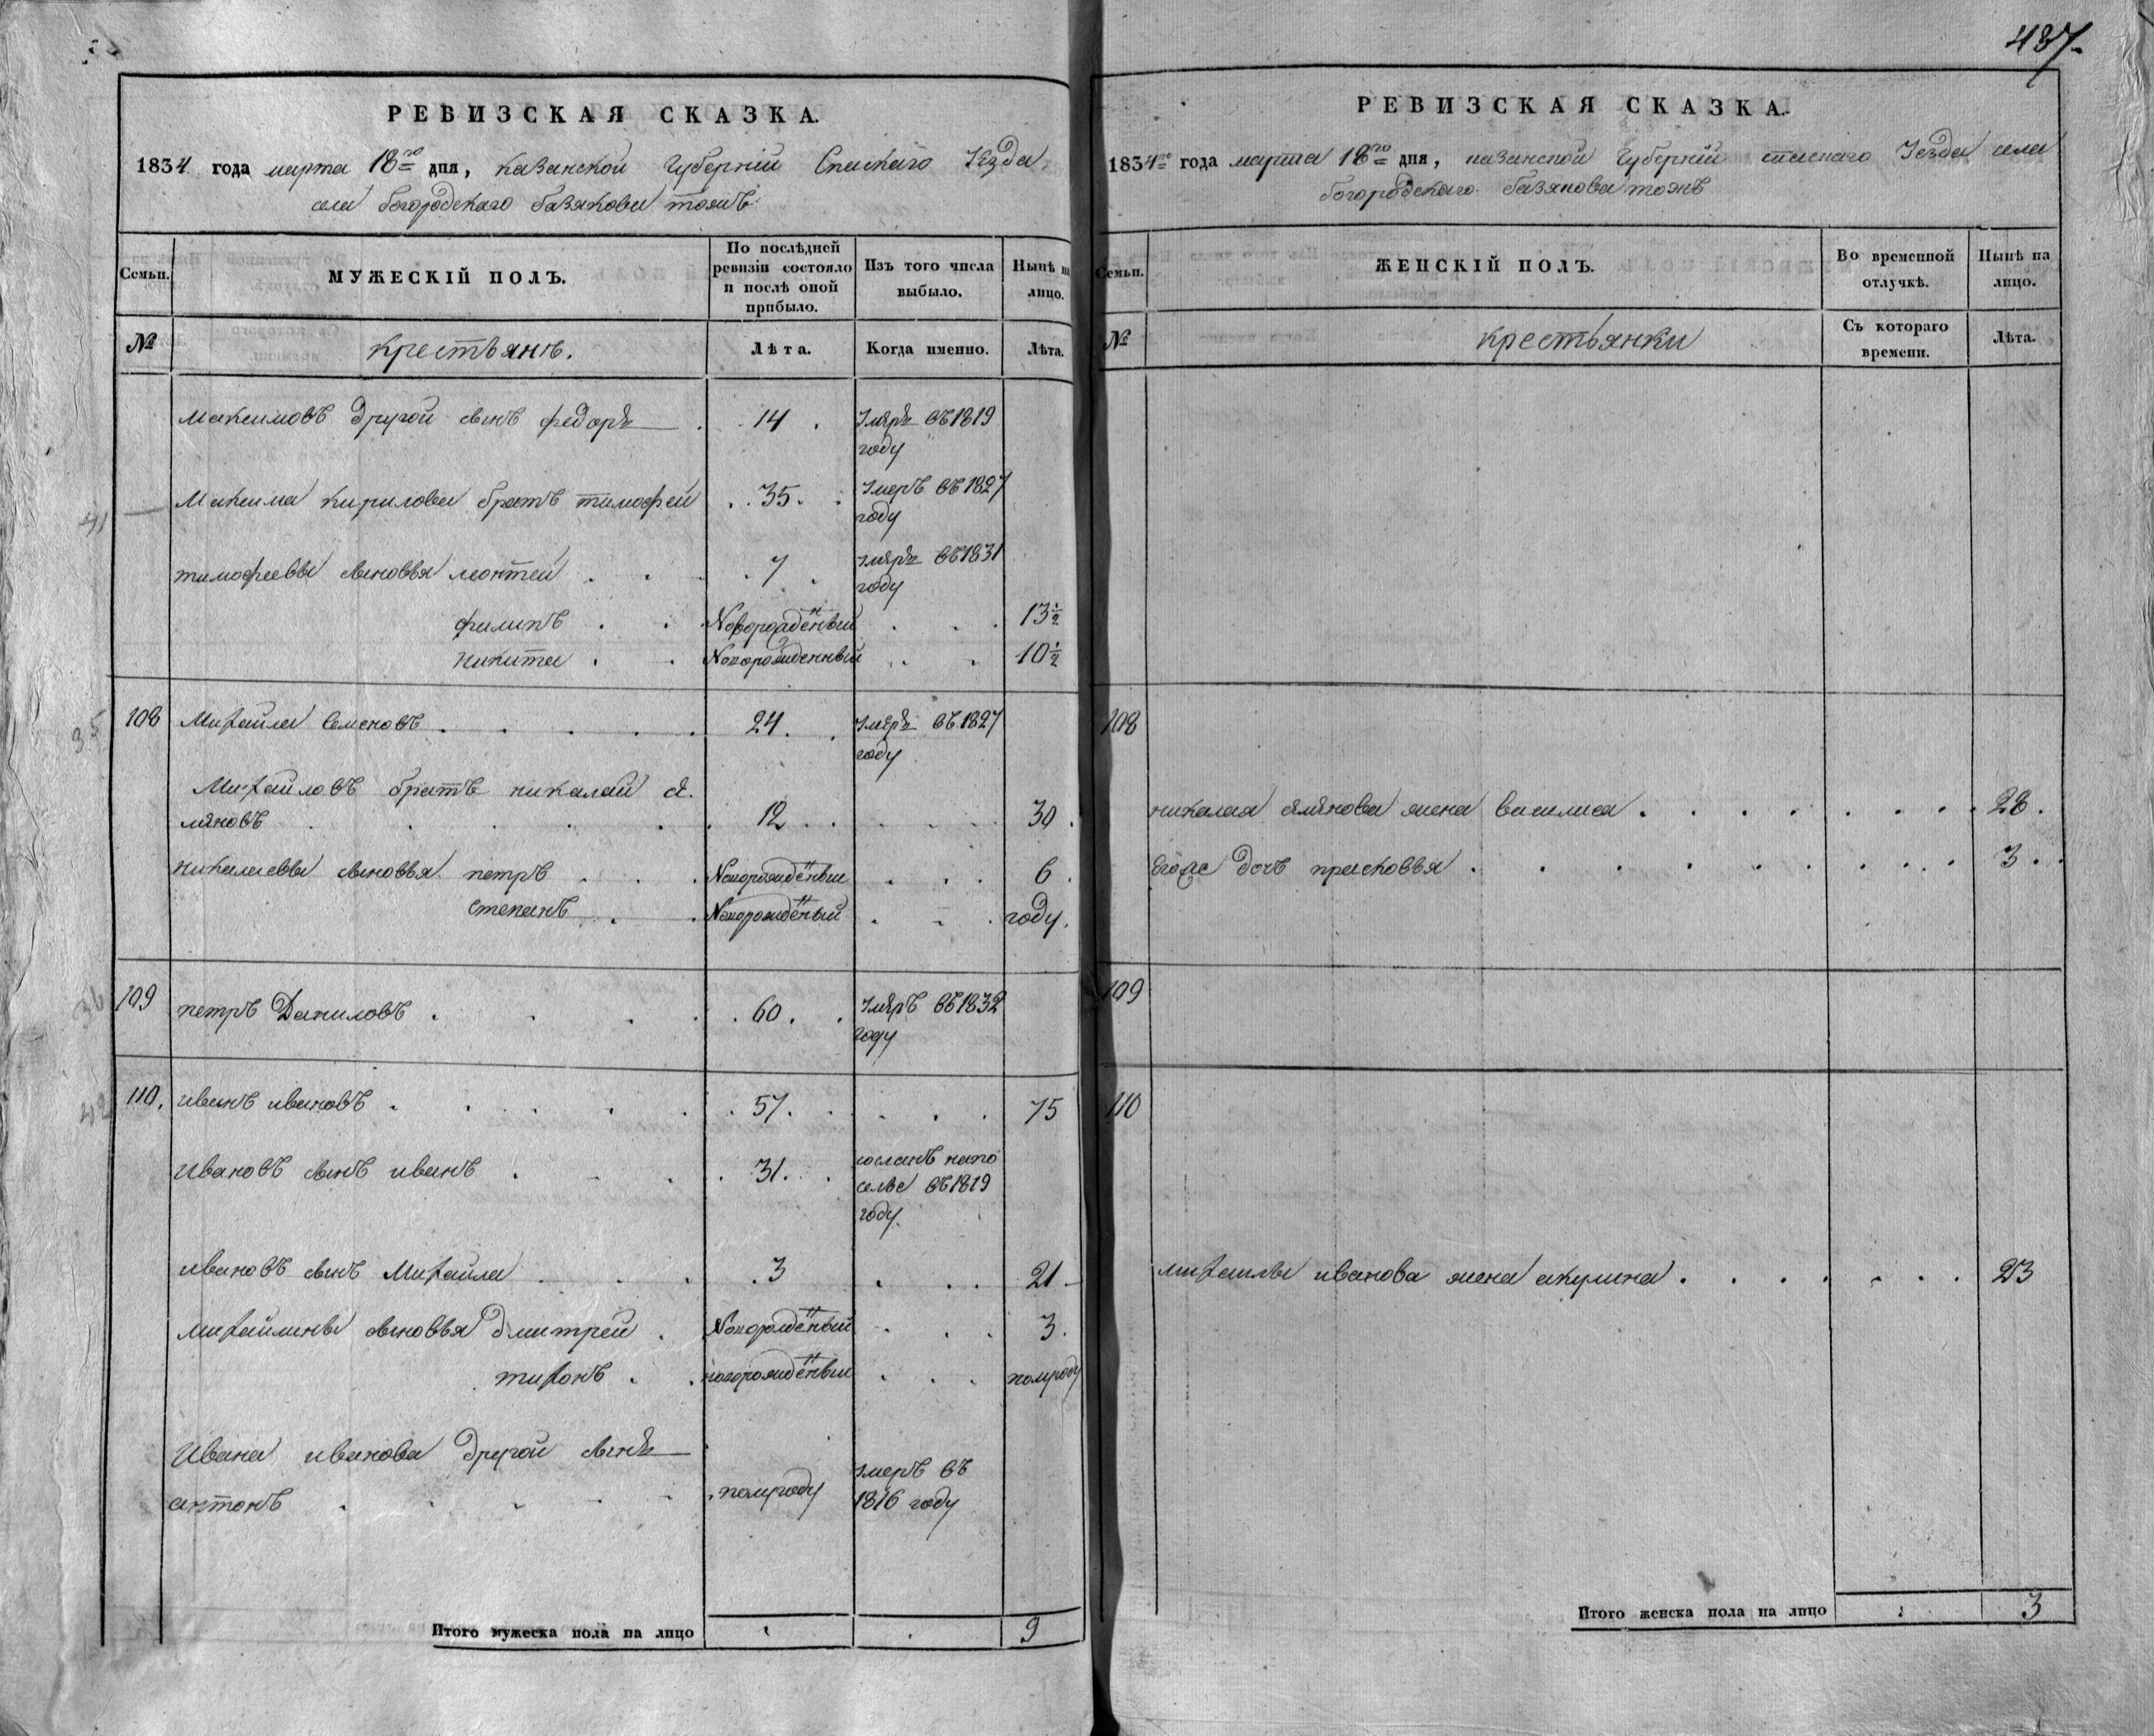 437.
РЕВИЗСКАЯ СКАЗКА.
1834 года марта 18го дня, казанской губернiи Спаскаго уезда
села богородскаго базякова тожъ
Семьи.
МУЖЕСКІЙ ПОЛЪ.
По послѣдней ревизіи состояло и послѣ оной прибыло.
Изъ того числа выбыло.
Нынѣ на лицо.
№
крестьянъ.
Лѣта.
Когда именно.
Лѣта.
Максимовъ другой сынъ федоръ . 14 . умеръ въ 1819
году
41 Максима кирилова братъ тимофей . . 35 . . умеръ въ 1827
году
тимофеевы сыновья леонтей . . . 7 . умеръ въ 1831
году
филипъ . . Новорожденный . . . 13 1/2
никита . . Новорожденный . . 10 1/2
35 108 Михайла Семеновъ . . . . . 24 . . умеръ въ 1827
году
Михайловъ братъ николай се.
меновъ . . . . . . 12 . . . . . 30 .
николаевы сыновья петръ . . . Новорожденный . . . 6 .
степанъ . . Новорожденный . . . году.
36 109 петръ Даниловъ . . . . . 60 . . умеръ въ 1832
году
42 110. иванъ ивановъ . . . . . . 57 . . . . . 75
Ивановъ сынъ иванъ . . . . 31 . . сосланъ напо
селье въ 1819
году.
ивановъ сынъ Михайла . . . . 3 . . . 21
михайлины сыновья Дмитрей . Новорожденный . . . 3 .
тихонъ . . новорожденный . . . полгоду
Ивана иванова другой сынъ
антонъ . . . . . . полгоду умеръ въ
1816 году
Итого мужеска пола на лицо . . 9
РЕВИЗСКАЯ СКАЗКА.
1834го года марта 18го дня, казанской губернiи спаскаго уезда села
богородскаго базякова тожъ
Семьи.
ЖЕНСКІЙ ПОЛЪ.
Во временной отлучкѣ.
Нынѣ на лицо.
№
крестьянки
Съ котораго времени.
Лѣта.
108
николая семенова жена василиса . . . . . . . . 28 .
Егоже дочь прасковья . . . . . . . . . 3 . .
109
110
михаилы иванова жена акулина . . . . . . . 23
Итого женска пола на лицо : 3